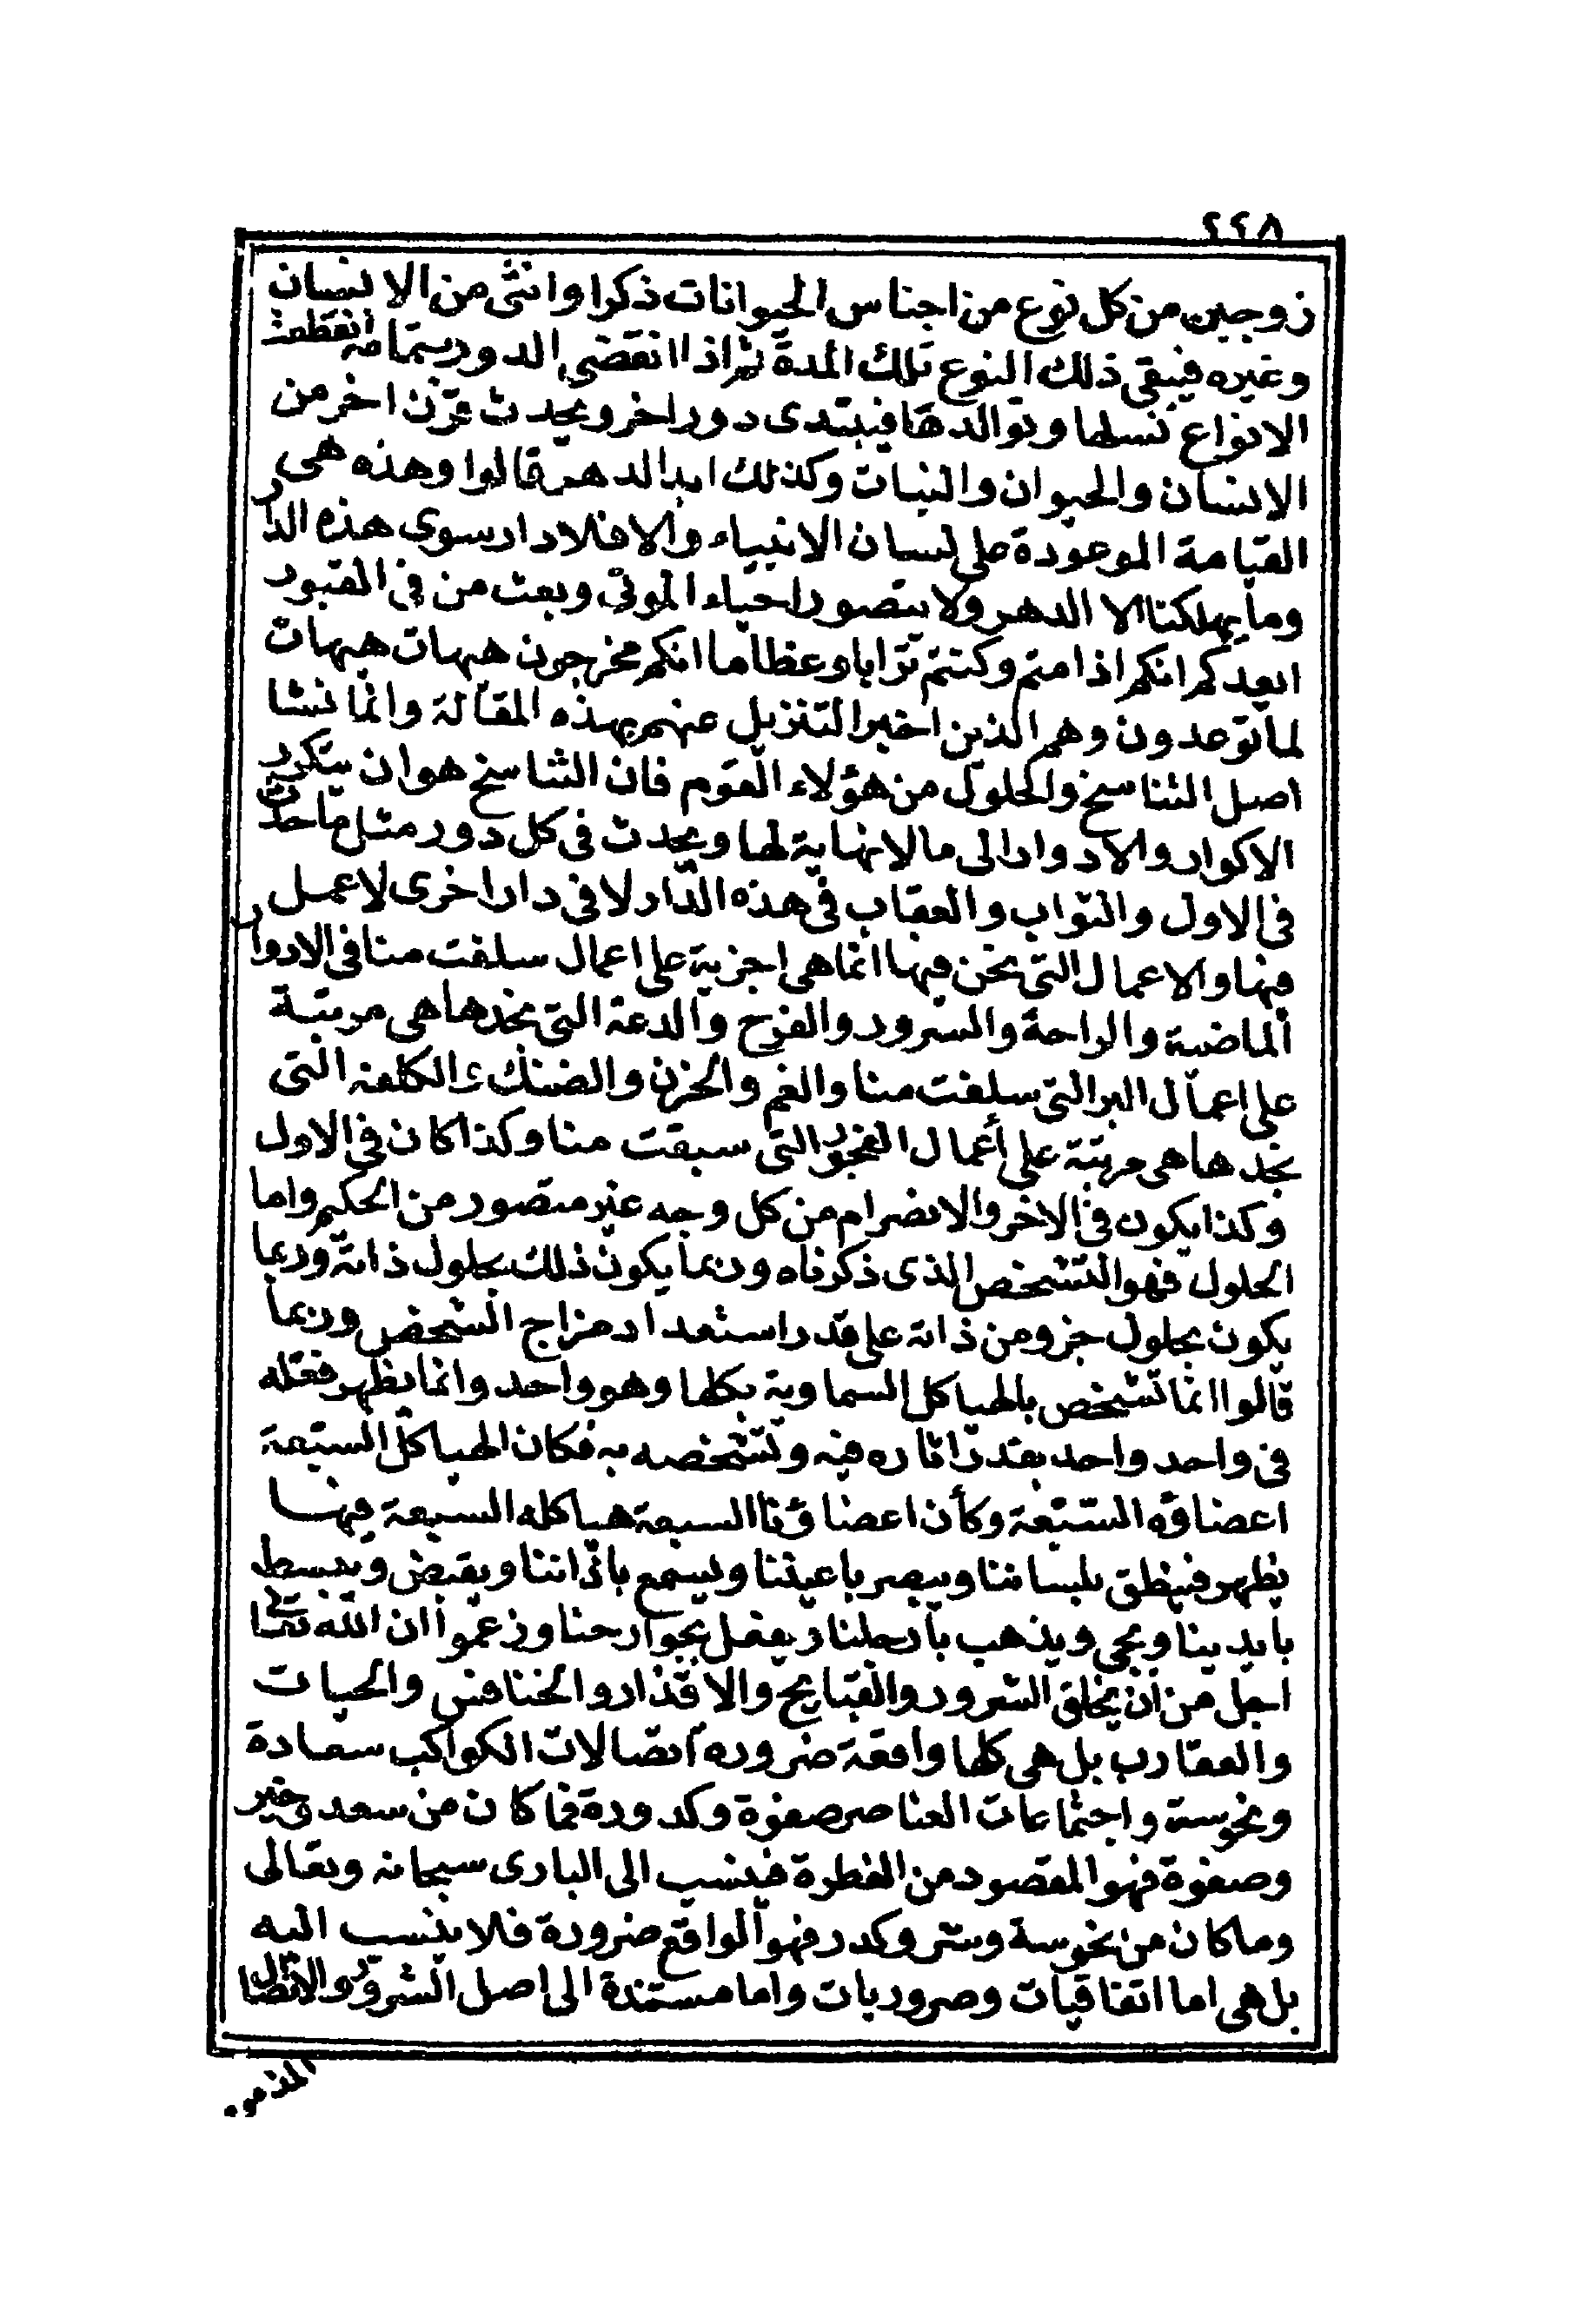 ٢٤٨
زوجين من كل نوع من اجناس الحيوانات ذكرا وانثى من الانسان
وغيره فيبقى ذلك النوع تلك المدة ثم اذا انقضى الدور بتمامه انقطعت
الانواع نسلها وتوالدها فيبتدى دور اخر ويحدث قرن اخر من
الانسان والحيوان والنبات وكذلك ابد الدهر قالوا وهذه هى
القيامة الموعودة على لسان الانبياء والا فلا دار سوى هذه الدار
وما يهلكنا الا الدهر ولا يتصور احياء الموتى وبعث من فى القبور
ايعدكم انكم اذا متم وكنتم ترابا وعظاما انكم مخرجون هيهات هيهات
لما توعدون وهم الذين اخبر التنزيل عنهم بهذه المقالة وانما نشا
اصل التناسخ والحلول من هؤلاء القوم فان التناسخ هو ان يتكرر
الاكوار والادوار الى ما لا نهاية لها ويحدث فى كل دور مثل ما حدث
فى الاول والثواب والعقاب فى هذه الدار لا فى دار اخرى لا عمل
فيها والاعمال التى نحن فيها انما هى اجزية على اعمال سلفت منا فى الادوار
الماضية والراحة والسرور والفرح والدعة التى نجدها هى مرتبة
على اعمال البر التى سلفت منا والغم والحزن والضنك والكلفه التى
نجدها هى مرتبة على أعمال الفجور التى سبقت منا وكذا كان فى الاول
وكذا يكون فى الاخر والانصرام من كل وجه غير متصور من الحكيم واما
الحلول فهو التشخص الذى ذكرناه وربما يكون ذلك بحلول ذاته وربما
يكون بحلول جزو من ذاته على قدر استعداد مزاج الشخص وربما
قالوا انما تشخص بالهياكل السماوية بكلها وهو واحد وانما يظهر فعله
فى واحد واحد بقدر اثاره فيه وتشخصه به فكان الهياكل السبعة
اعضاؤه السبعة وكأن اعضاؤنا السبعة هياكله السبعة فيها
يظهر فينطق بلساننا ويبصر باعيننا ويسمع باذاننا ويقبض ويبسط
بايدينا ويجى ويذهب بأرجلنا ويفعل بجوارحنا وزعموا ان الله تعالى
اجل من أن يخلق الشرور والقبايح والاقذار والخنافس والحيات
والعقارب بل هى كلها واقعة ضروره اتصالات الكواكب سعادة
ونحوسة واجتماعات العناصر صفوة وكدورة فما كان من سعد وخير
وصفوة فهو المقصود من الفطرة فينسب الى البارى سبحانه وتعالى
وما كان من نحوسة وشر وكدر فهو الواقع ضرورة فلا ينسب اليه
بل هى اما اتفاقيات وضروريات واما مستندة الى اصل الشرور والاتصال
المذموم